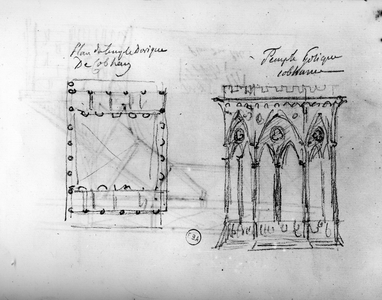 Plan du temple Dorique
De Cobham
Temple Gotique
cobham